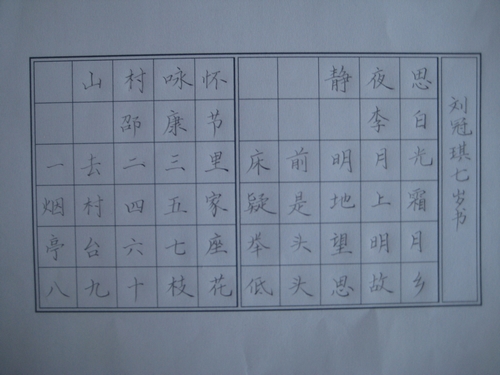 山村咏怀
邵康节
一去二三里
烟村四五家
亭台六七座
八九十枝花
静夜思
李白
床前明月光
疑是地上霜
举头望明月
低头思故乡
刘冠琪七岁书